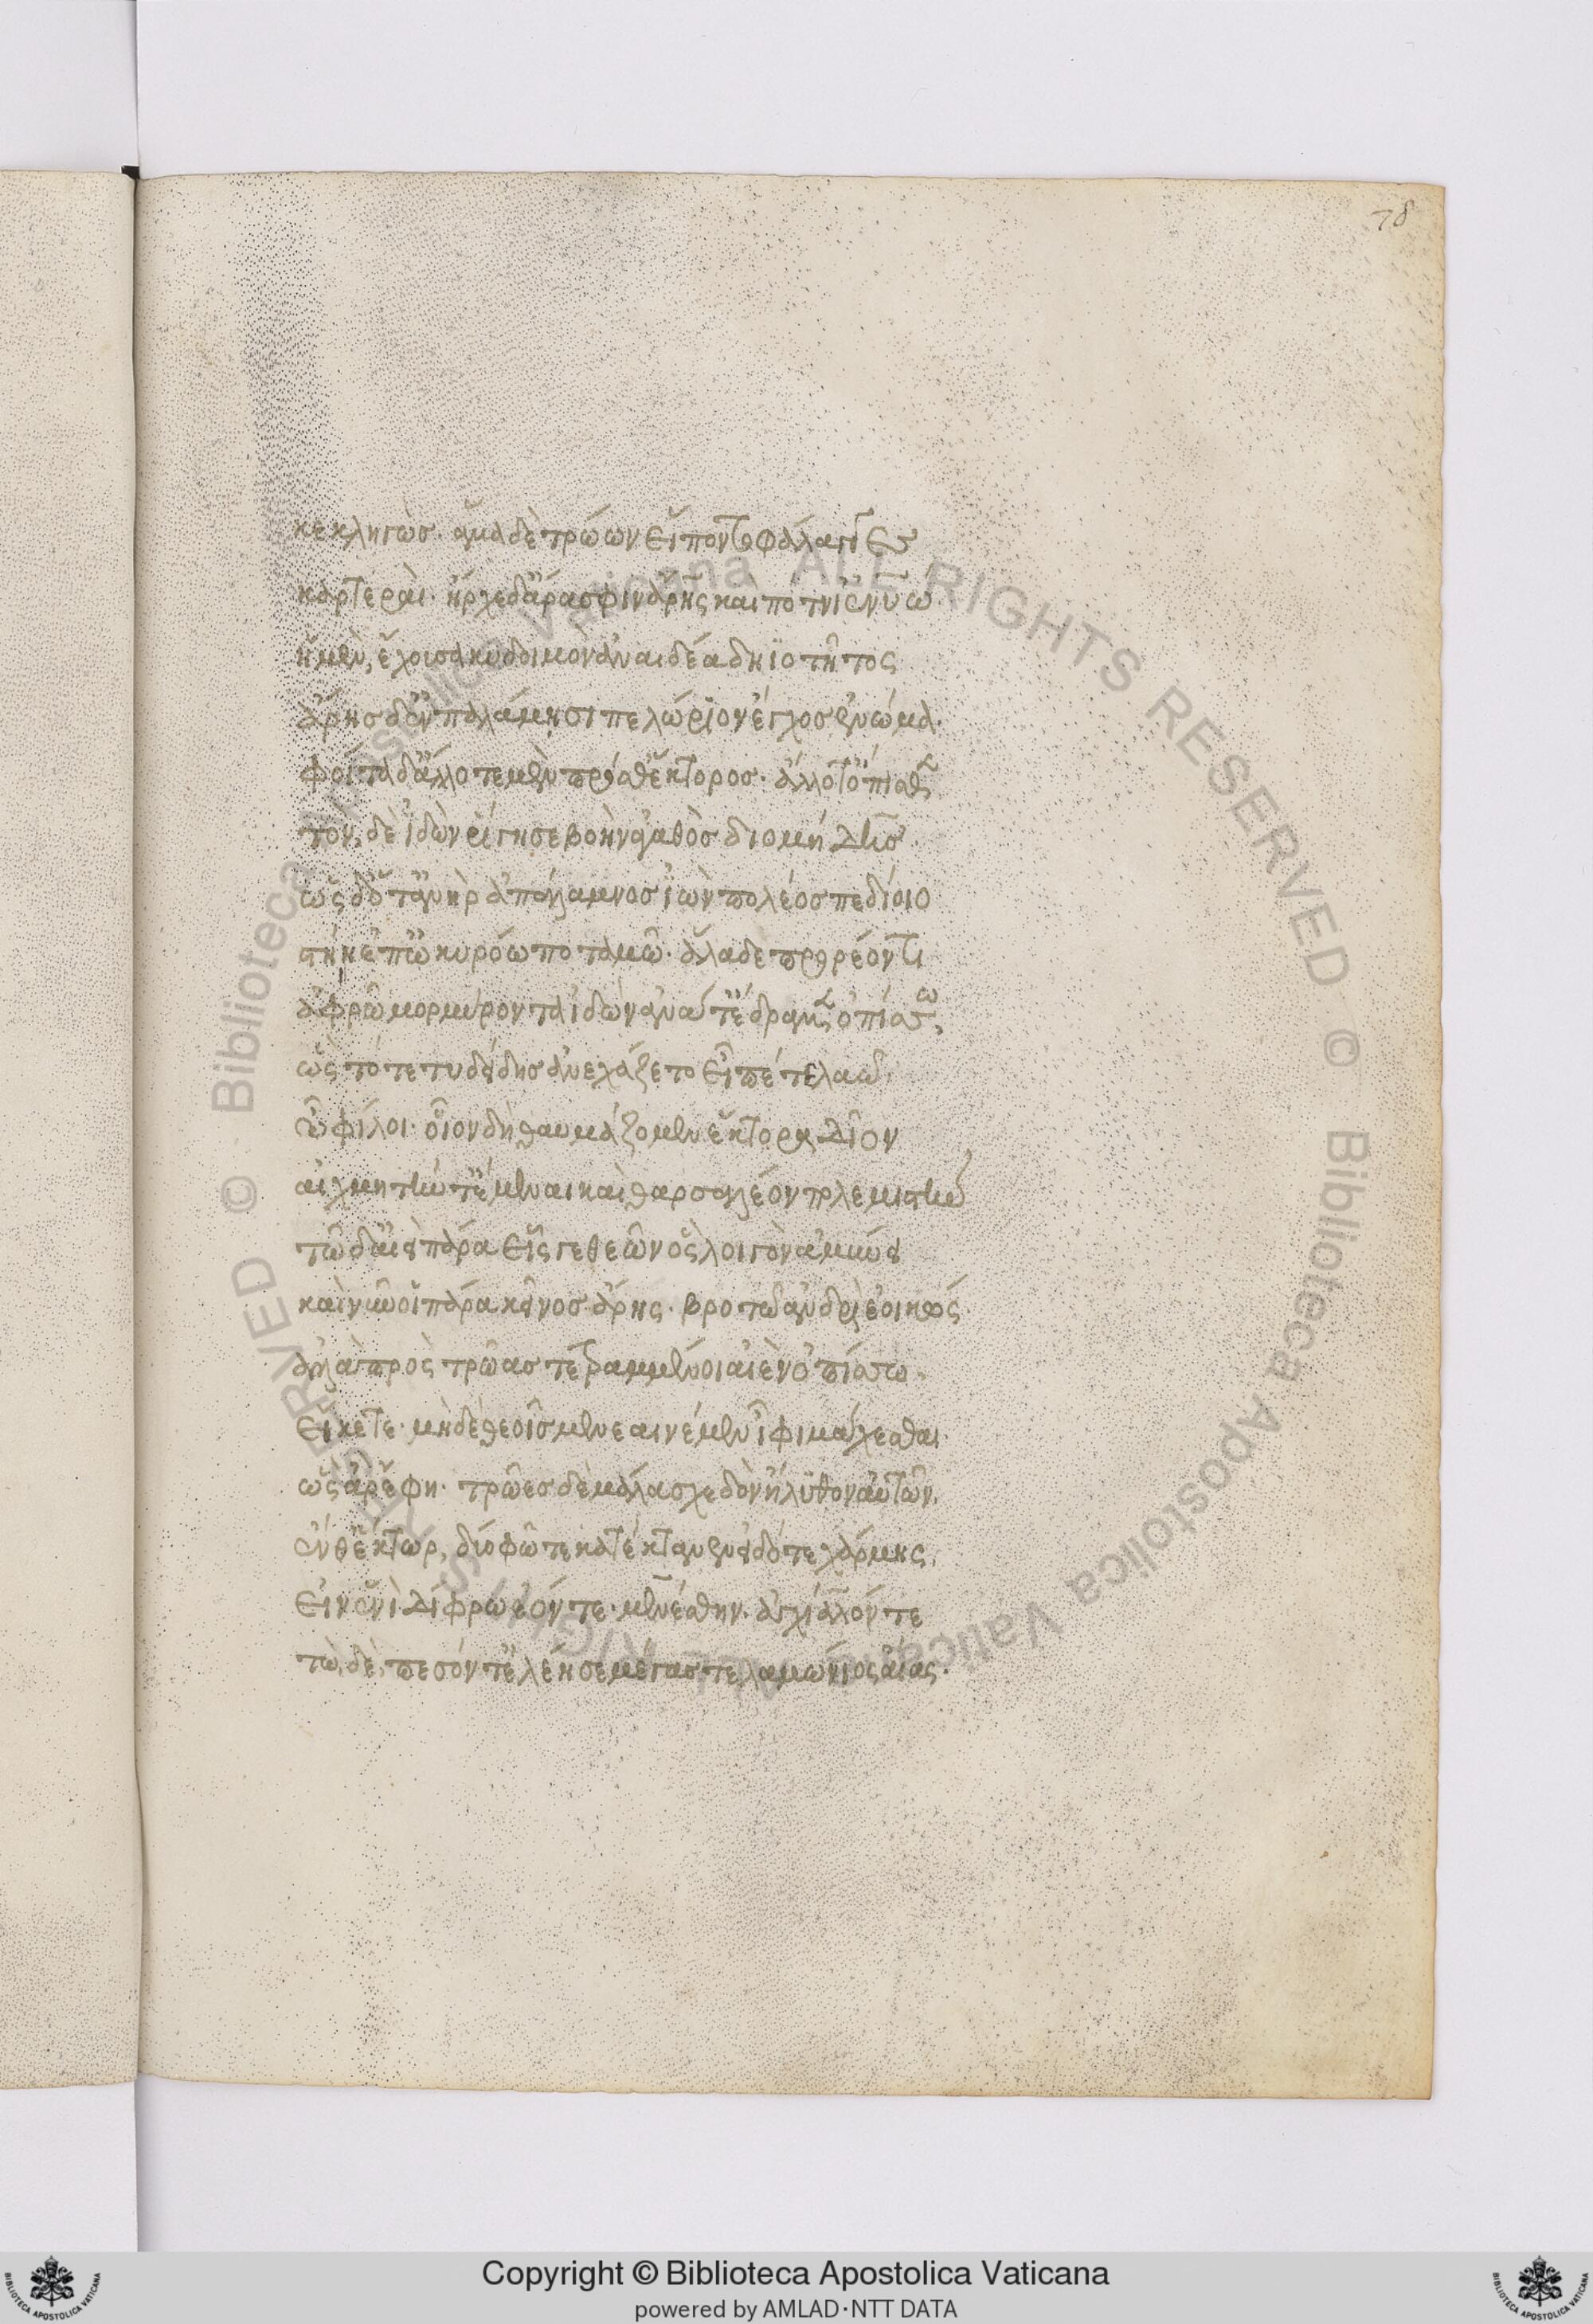 78
κεκληγὼσ· ἅμα δὲ τρώων εἵποντο φάλαγγες
καρτεραί· ἦρχε δ' ἄρα σφιν ἄρης καὶ πότνι' ἐνυώ
ἡ μὲν, ἔχουσα κυδοιμὸν ἀναιδέα δηϊοτῆτος
ἄρησ δ' ἐν παλάμησι πελώριον ἔγχοσ ἐνώμα·
φοίτα δ' ἄλλοτε μὲν πρόσθ' ἕκτοροσ· ἄλλοτ' ὄπισθε
τὸν, δὲ ἰδὼν ῥίγησε βοὴν ἀγαθὸσ διομήδησ
ὡς δ' ὅτ' ἀνὴρ ἀπάλαμνοσ ἰὼν πολέοσ πεδίοιο
στήη ἐπ' ὠκυρόω ποταμῶ· ἅλα δε προρέοντι
ἀφρῶ μορμύροντα ἰδὼν ἀνά τ' ἔδραμε ὀπίσσω,
ὣς τότε τυδείδησ ἀνεχάζετο εἶπέ τε λαῶ·
ὦ φίλοι· οἷον δὴ θαυμάζομεν ἕκτορα δῖον
αἰχμητήν τ' ἔμεναι καὶ θαρσαλέον πολεμιστήν
τῶ δ' αἰεὶ πάρα εἷς γε θεῶν ὃς λοιγὸν ἀμύνει
καὶ νῦν οἱ πάρα κεῖνοσ ἄρης· βροτῶ ἀνδρὶ ἐοικώς·
ἀλλὰ πρὸς τρῶασ τετραμμένοι αἰὲν ὀπίσσω·
εἴκετε· μὴ δὲ θεοῖσ μενεαινέμεν ἶφι μάχεσθαι
ὣς ἄρ' ἔφη· τρῶεσ δὲ μάλα σχεδὸν ἤλυθον αὐτῶν·
ἔνθ' ἕκτωρ, δύο φῶτε κατέκτανεν εἰδότε χάρμης,
εἰν ἑνὶ δίφρω ἐόντε· μενέσθην· ἀγχίαλόν τε
τὼ, δὲ, πεσόντ' ἐλέησε μέγασ τελαμώνιος αἴας·
Copyright © Biblioteca Apostolica Vaticana
powered by AMLAD·NTT DATA